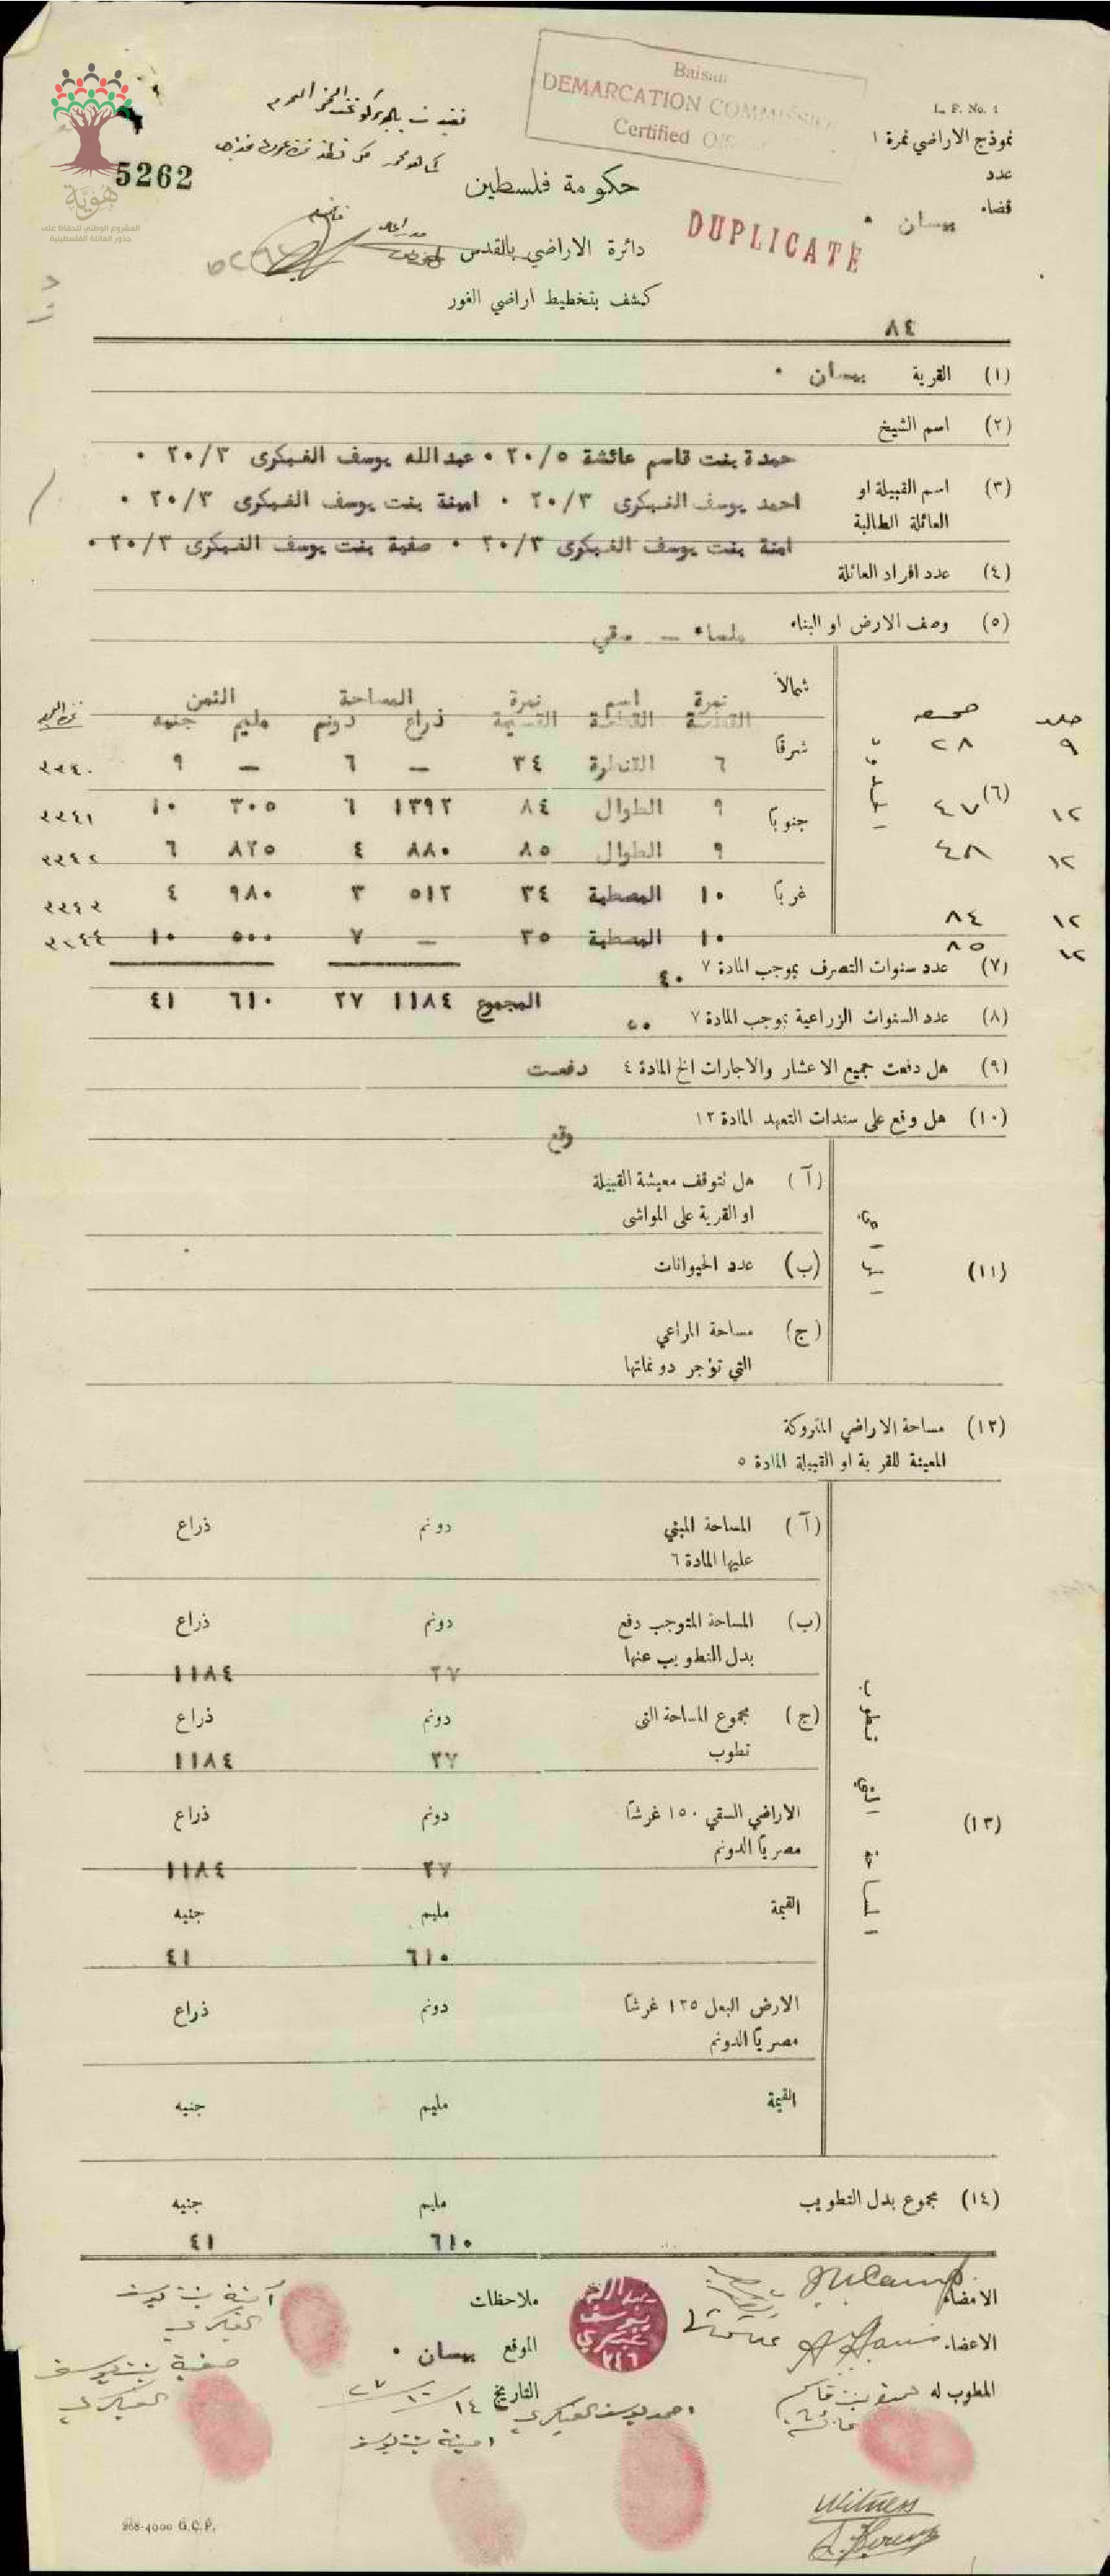 Baisan
DEMARCATION COMMISSION
Certified
L. F. No. 1
نموذج الاراضي نمرة ١
عدد
قضاء بيسان ٠
5262
هوية
المشروع الوطني للحفاظ على
جذور العائلة الفلسطينية
حكومة فلسطين
DUPLICATE
دائرة الاراضي بالقدس
كشف بتخطيط اراضي الغور
٨٤
(١) القرية بيسان ٠
(٢) اسم الشيخ
حمدة بنت قاسم عائشة ٢٠/٥ ٠ عبدالله يوسف الفبكرى ٢٠/٣ ٠
(٣) اسم القبيلة او
العائلة الطالبة
احمد يوسف الفبكرى ٢٠/٣ ٠ امينة بنت يوسف الفبكرى ٢٠/٣ ٠
امنة بنت يوسف الفبكرى ٢٠/٣ ٠ صفية بنت يوسف الفبكرى ٢٠/٣ ٠
(٤) عدد افراد العائلة
(٥) وصف الارض او البناء ملساء — سقي
جلد صحيفة شمالاً نمرة القطعة اسم القطعة نمرة القسيمة المساحة ذراع دونم الثمن مليم جنيه
٩ ٢٨ شرقاً ٦ القنطرة ٣٤ — ٦ — ٩ ٢٢٤٠
(٦) الحدود
١٢ ٤٧ جنوباً ٩ الطوال ٨٤ ١٣٩٢ ٦ ٣٠٥ ١٠ ٢٢٤١
١٢ ٤٨ ٩ الطوال ٨٥ ٨٨٠ ٤ ٨٢٥ ٦ ٢٢٤٢
١٢ ٨٤ غرباً ١٠ المصطبة ٣٤ ٥١٢ ٣ ٩٨٠ ٤ ٢٢٤٣
١٢ ٨٥ ١٠ المصطبة ٣٥ — ٧ ٥٠٠ ١٠ ٢٢٤٤
(٧) عدد سنوات التصرف بموجب المادة ٧ ٤٠
المجموع ١١٨٤ ٢٧ ٦١٠ ٤١
(٨) عدد السنوات الزراعية بموجب المادة ٧ ٥٠
(٩) هل دفعت جميع الاعشار والاجارات الخ المادة ٤ دفعت
(١٠) هل وقع على سندات التعهد المادة ١٣ وقع
(١١)
(آ) هل تتوقف معيشة القبيلة
او القرية على المواشى
(ب) عدد الحيوانات
(ج) مساحة المراعي
التي تؤجر دونماتها
(١٢) مساحة الاراضي المتروكة
المعينة للقرية او القبيلة المادة ٥
(١٣) المساحة التي تطوب
(آ) المساحة المبني دونم ذراع
عليها المادة ٦
(ب) المساحة المتوجب دفع دونم ذراع
بدل التطويب عنها ٢٧ ١١٨٤
(ج) مجموع المساحة التى دونم ذراع
تطوب ٢٧ ١١٨٤
الاراضي السقي ١٥٠ غرشاً دونم ذراع
مصرياً الدونم ٢٧ ١١٨٤
القيمة مليم جنيه
٦١٠ ٤١
الارض البعل ١٢٥ غرشاً دونم ذراع
مصرياً الدونم
القيمة مليم جنيه
(١٤) مجموع بدل التطويب مليم جنيه
٦١٠ ٤١
الامضاء
ملاحظات
آمنة بنت يوسف
الاعضاء
عبدالله
يوسف
الموقع بيسان ٠
صفية بنت يوسف
المطوب له حمدة بنت قاسم
احمد يوسف
التاريخ ١٤
امينة بنت يوسف
Witness
968-4000 G.C.P.